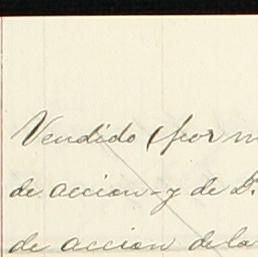 Vendido (por m
de accion-y de D.
de accion de la